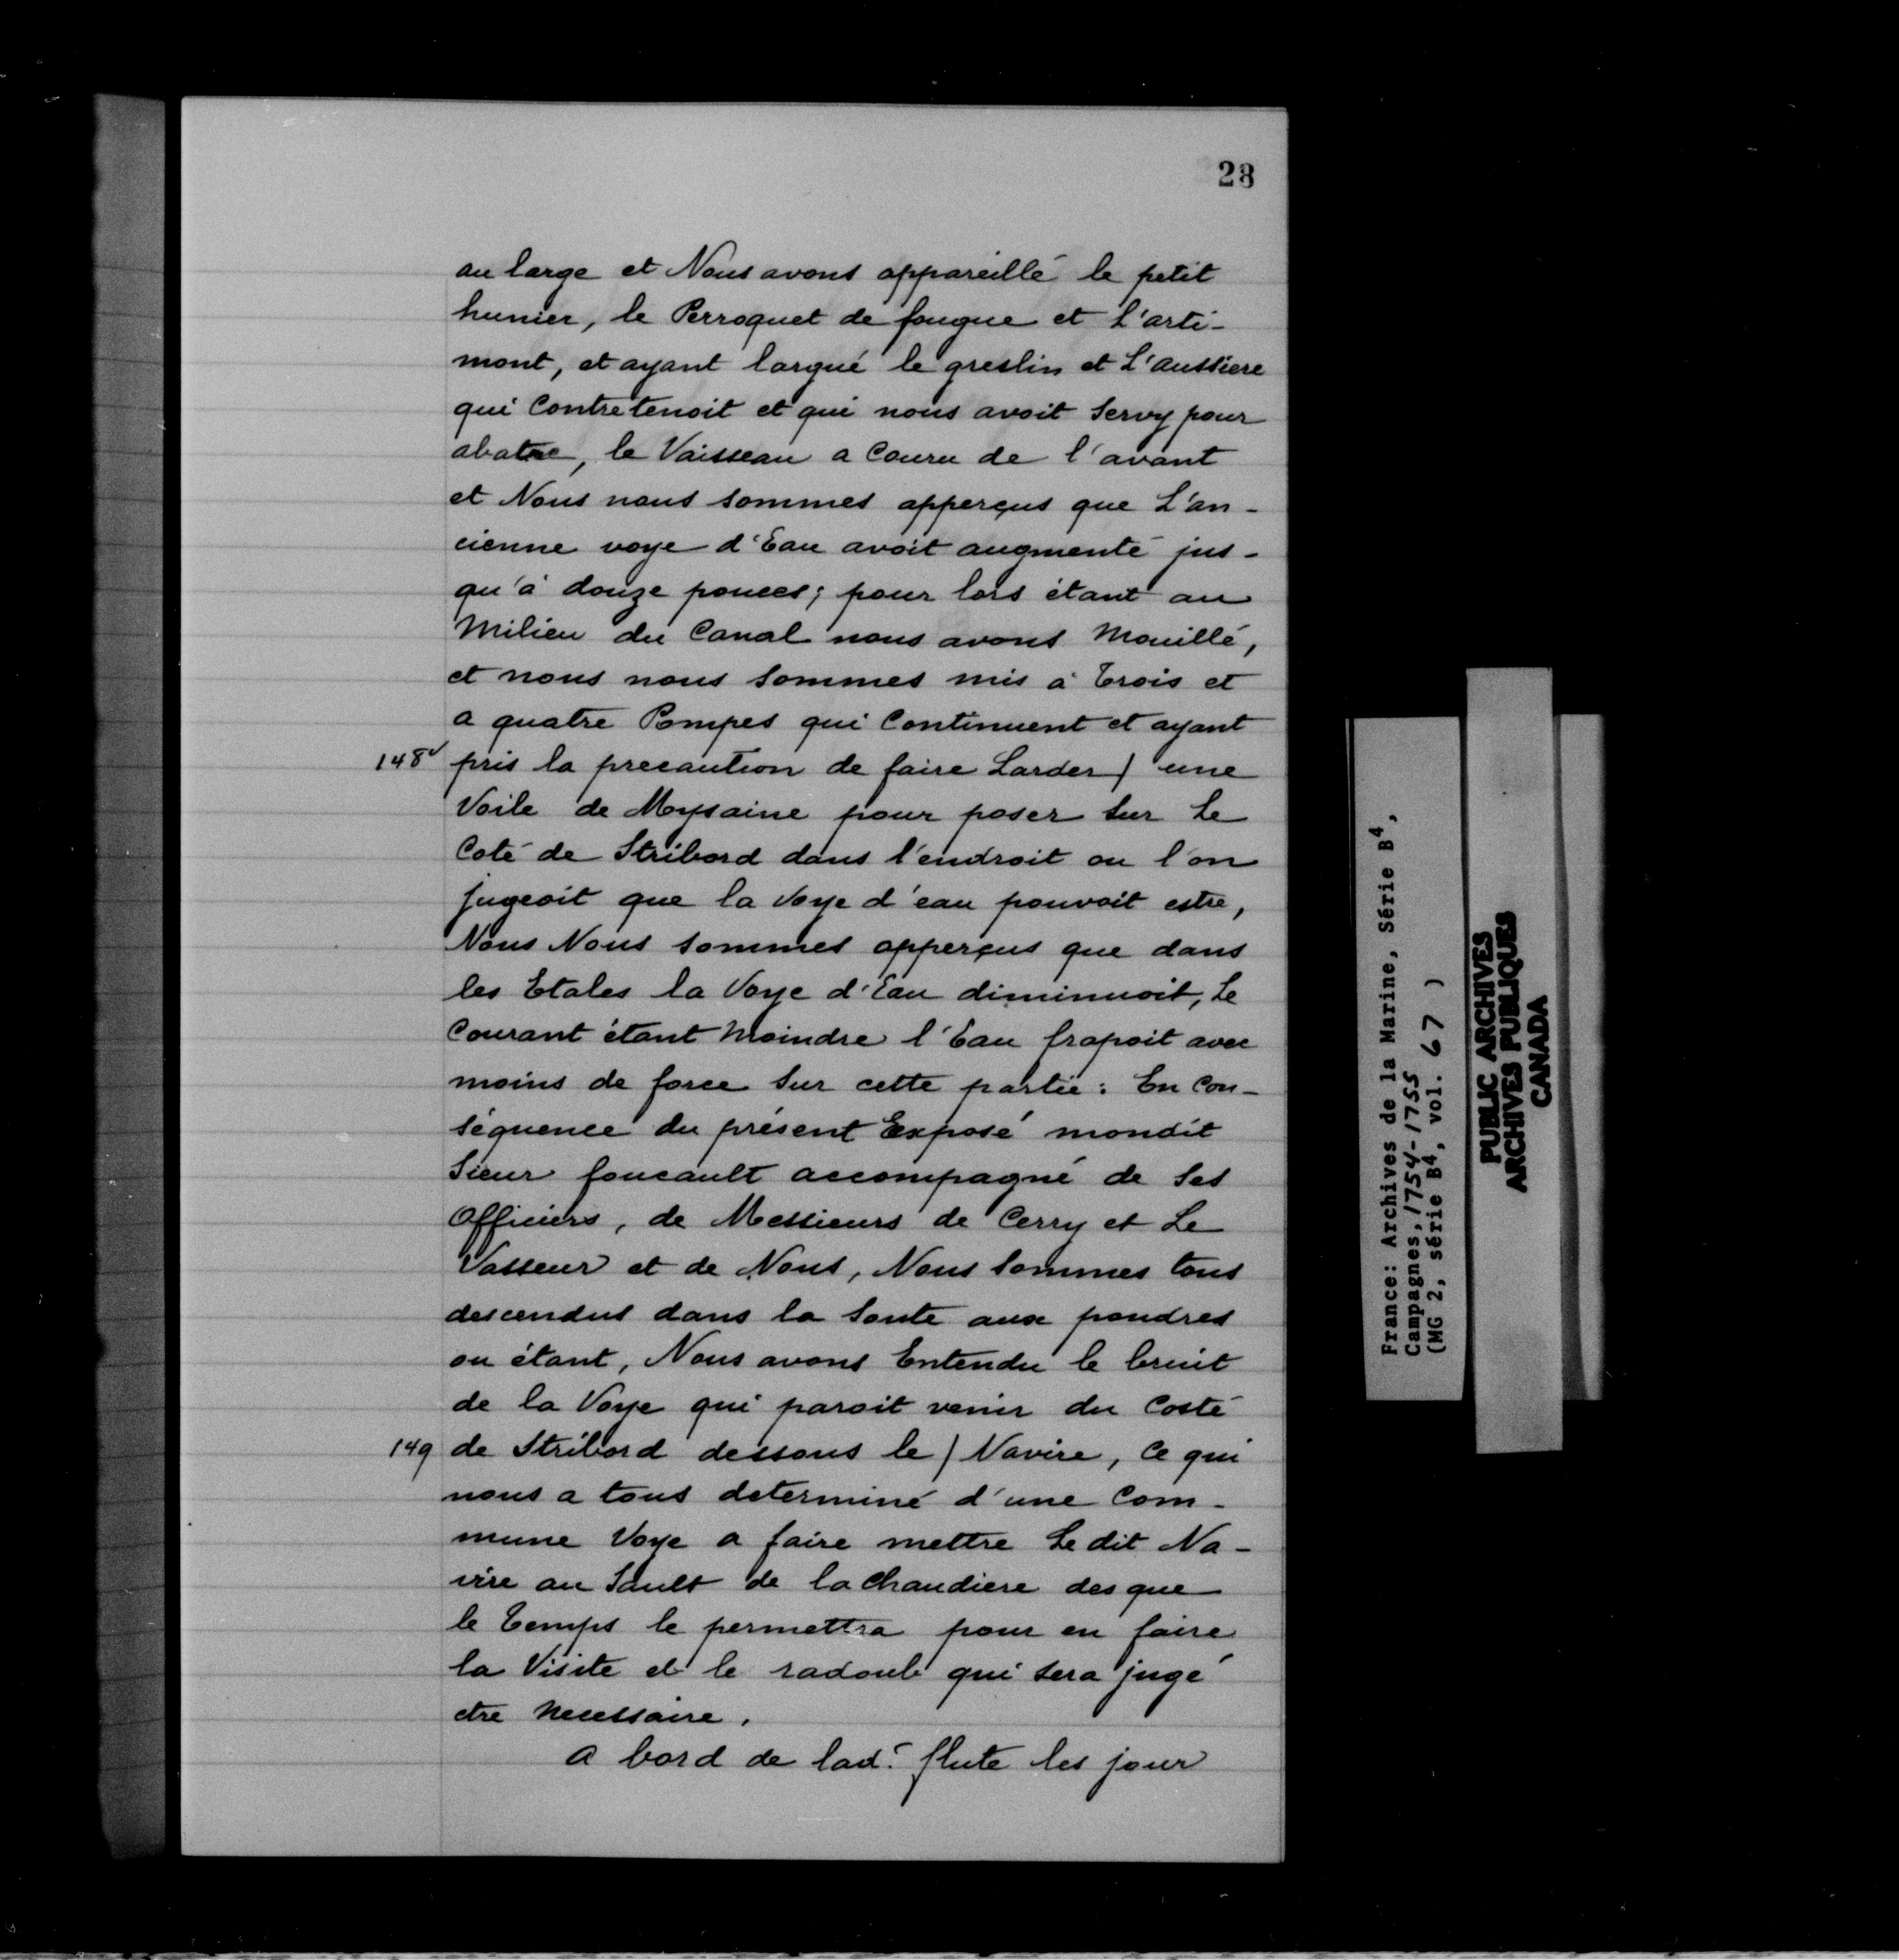 28
au large et Nous avons appareillé le petit
hunier, le Perroquet de fougue et L'arti-
mont, et ayant largué le greslin et L'aussiere
qui Contretenoit et qui nous avoit Servy pour
abatre, le Vaisseau a Couru de l'avant
et Nous nous sommes apperçus que L'an-
cienne voye d'Eau avoit augmenté jus-
qu'à douze pouces; pour lors étant au
Milieu du Canal nous avons Mouillé,
et nous nous sommes mis à Trois et
a quatre Pompes qui Continuent et ayant
148v pris la precaution de faire Larder / une
Voile de Mysaine pour poser Sur Le
Coté de Stribord dans l'endroit ou l'on
jugeoit que la Voye d'eau pouvoit estre,
Nous Nous sommes apperçus que dans
les Etales la Voye d'Eau diminuoit, Le
Courant étant Moindre l'Eau frapoit avec
moins de force Sur cette partie : En Con-
séquence du présent Exposé mondit
Sieur foucault accompagné de Ses
Officiers, de Messieurs de Cerry et Le
Vasseur et de Nous, Nous Sommes tous
descendus dans la Soute aux poudres
ou étant, Nous avons Entendu le bruit
de la Voye qui paroit venir du Costé
149 de Stribord dessous le / Navire, Ce qui
nous a tous determiné d'une Com-
mune Voye a faire mettre Le dit Na-
vire au Sault de la Chaudiere des que
le Temps le permettra pour en faire
la Visite et le radoub qui Sera jugé
etre Necessaire.
A bord de lad.e flute les jour
France: Archives de la Marine, Série B4,
Campagnes, 1754-1755
(MG 2, série B4, vol. 67 )
PUBLIC ARCHIVES
ARCHIVES PUBLIQUES
CANADA